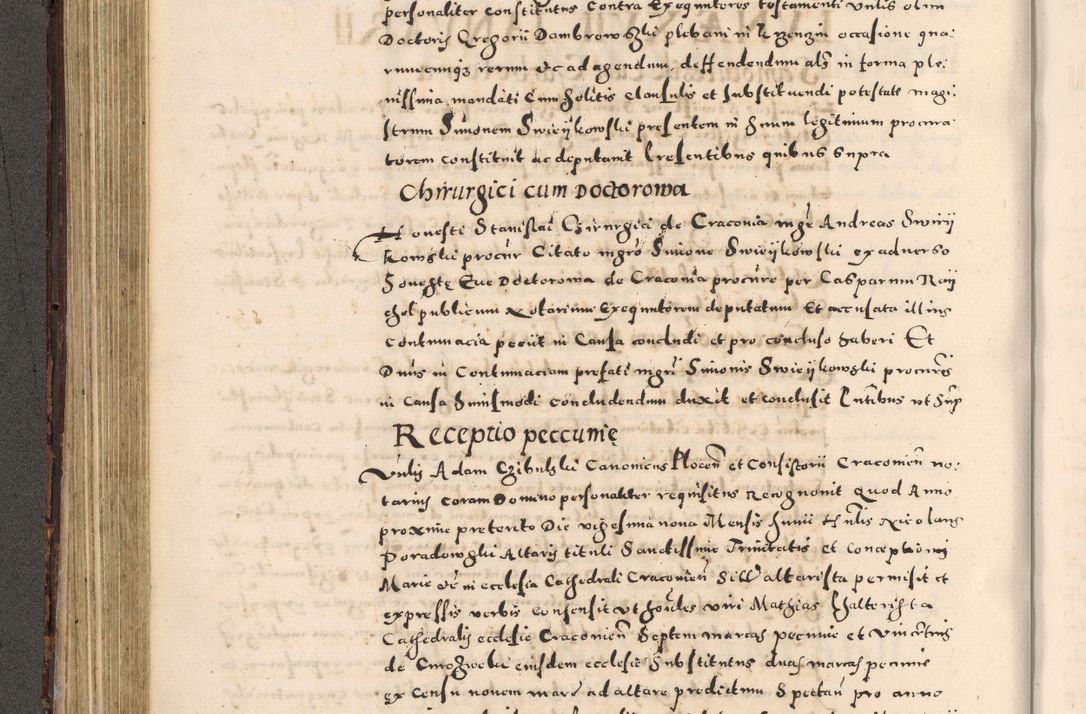 personaliter constitutus contra Exequutores testamenti Vnlis olim
Doctoris Gregorii Dambrowszki plebani in occasione qua-
rumcunq3 rerum &c ad agendum, deffendendum als in forma ple-
nissima mandati Cum Solitis clausulis et Substituendi potestate magi-
strum Simonem Swieykowski presentem in Suum legitimum procura-
torem constituit ac deputavit Presentibus quibus Supra
Chirurgici cum Doctorowa
Honesti Stanislai Chirurgici de Cracovia mgr Andreas Swiry
kowski procur Citato mgro Simone Swieykowski ex adverso
honeste Eve Doctorowa de Cracovia procure per Casparum Kay
publicum Notarium Exequutorem deputatum Et accusata illius
Contumacia peciit in Causa concludi et pro concluso haberi Et
Dnus in Contumaciam prefati mgri Simonis Swieykowski procuris
in Causa huiusmodi concludendum duxit et conclusit Pntibus vt Sup
Receptio peccunię
Vnlis Adam Czibulski Canonicus Plocen et Consistorii Cracovien no-
tarius coram Domino personaliter requisitus Recognovit Quod Anno
proxime preterito Die vigesima nona Mensis Junii Hnlis Nicolaus
Poradowski Altaris tituli Sanctissime Trinitatis et Conceptionis
Marie in ecclesia Cathedrali Cracovien altarista permisit et
expressis verbis consensit vt hoñles viri Mathias Psalterista
Cathedralis ecclesie Cracovien Septem marcas pecunie et Vincentius
de eiusdem ecclesie Substitutus duas marcas pecunie
ex Censu novem marc ad altare predictum Spectan pro anno